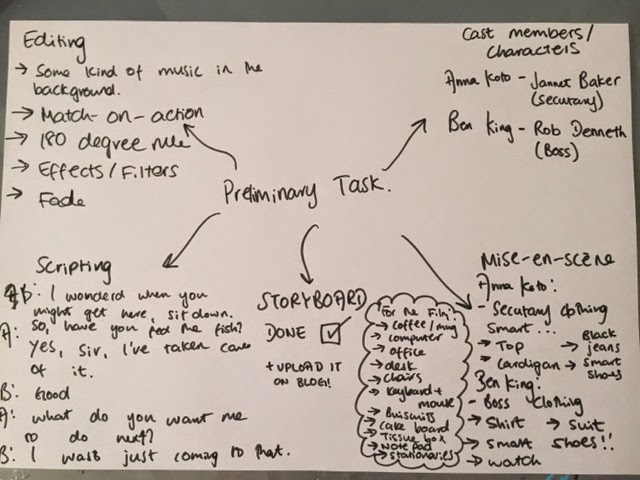 Editing
→ Some kind of music in the
background.
→ Match-on-action
→ 180 degree rule
→ Effects/Filters
→ Fade
Cast members/
characters
Anna Koto - Jannet Baker
(secutary)
Ben King - Rob Denneth
(Boss)
Preliminary Task.
Scripting
B: I wonderd when you
might get here, sit down.
So, have you fed the fish?
A: Yes, Sir, I've taken care
of it.
B: Good
A: What do you want me
to do next?
B: I was just coming to that.
STORYBOARD
DONE ☑
+ UPLOAD IT
ON BLOG!
For the Film:
→ coffee/mug
→ computer
→ office
→ desk
→ chairs
→ keyboard +
mouse
→ Buisuits
→ cake board
→ Tissue box
→ Note pad
→ stationaries
Mise-en-scene
Anna Koto:
- Secutary clothing
Smart...
→ Top
→ Black
jeans
→ Cardigan
→ smart
shoes
Ben King:
- Boss clothing
→ Shirt → suit
→ smart shoes!!
→ watch